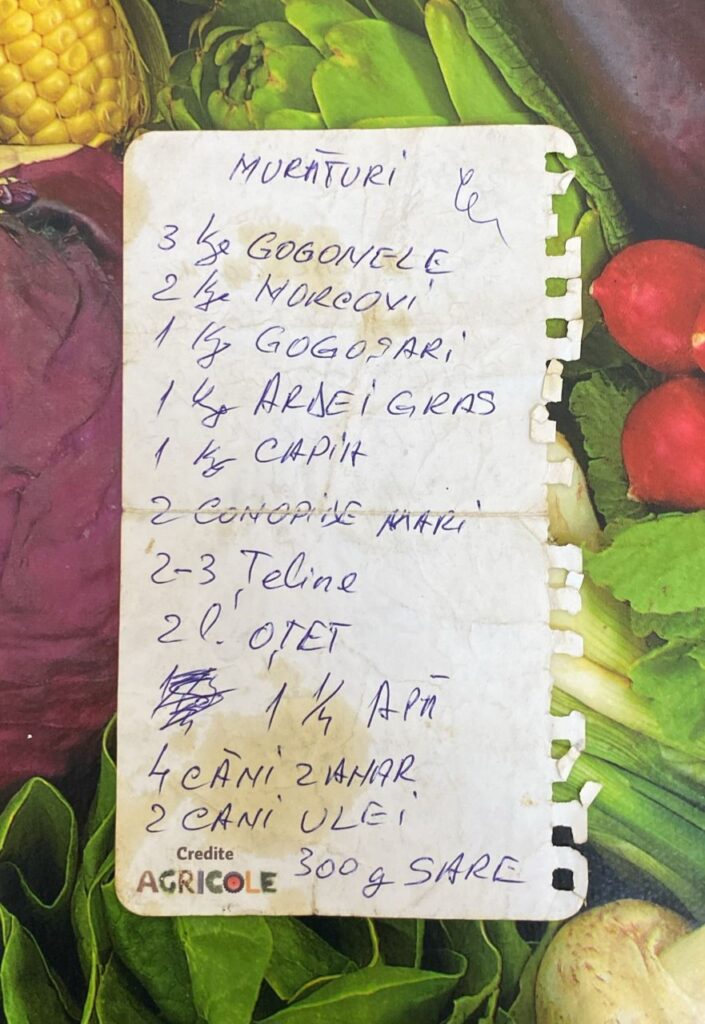 MURĂTURI
3 Kg GOGONELE
2 Kg MORCOVI
1 Kg GOGOȘARI
1 Kg ARDEI GRAS
1 Kg CAPIA
2 CONOPIDE MARI
2-3 Țeline
2 l. OȚET
1 1/4 APĂ
4 CĂNI ZAHAR
2 CANI ULEI
300 g SARE
Credite
AGRICOLE